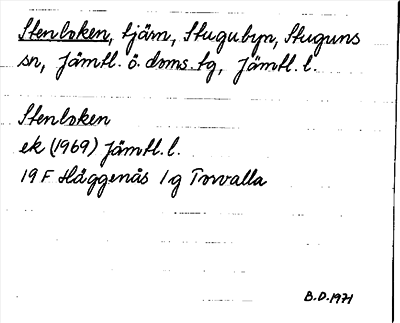 Stenloken, tjärn, Stugubyn, Stuguns
sn, Jämtl. ö. doms. tg, Jämtl. l.
Stenloken
ek (1969) Jämtl. l.
19 F Häggenås 1g Torvalla
B.D. 1971